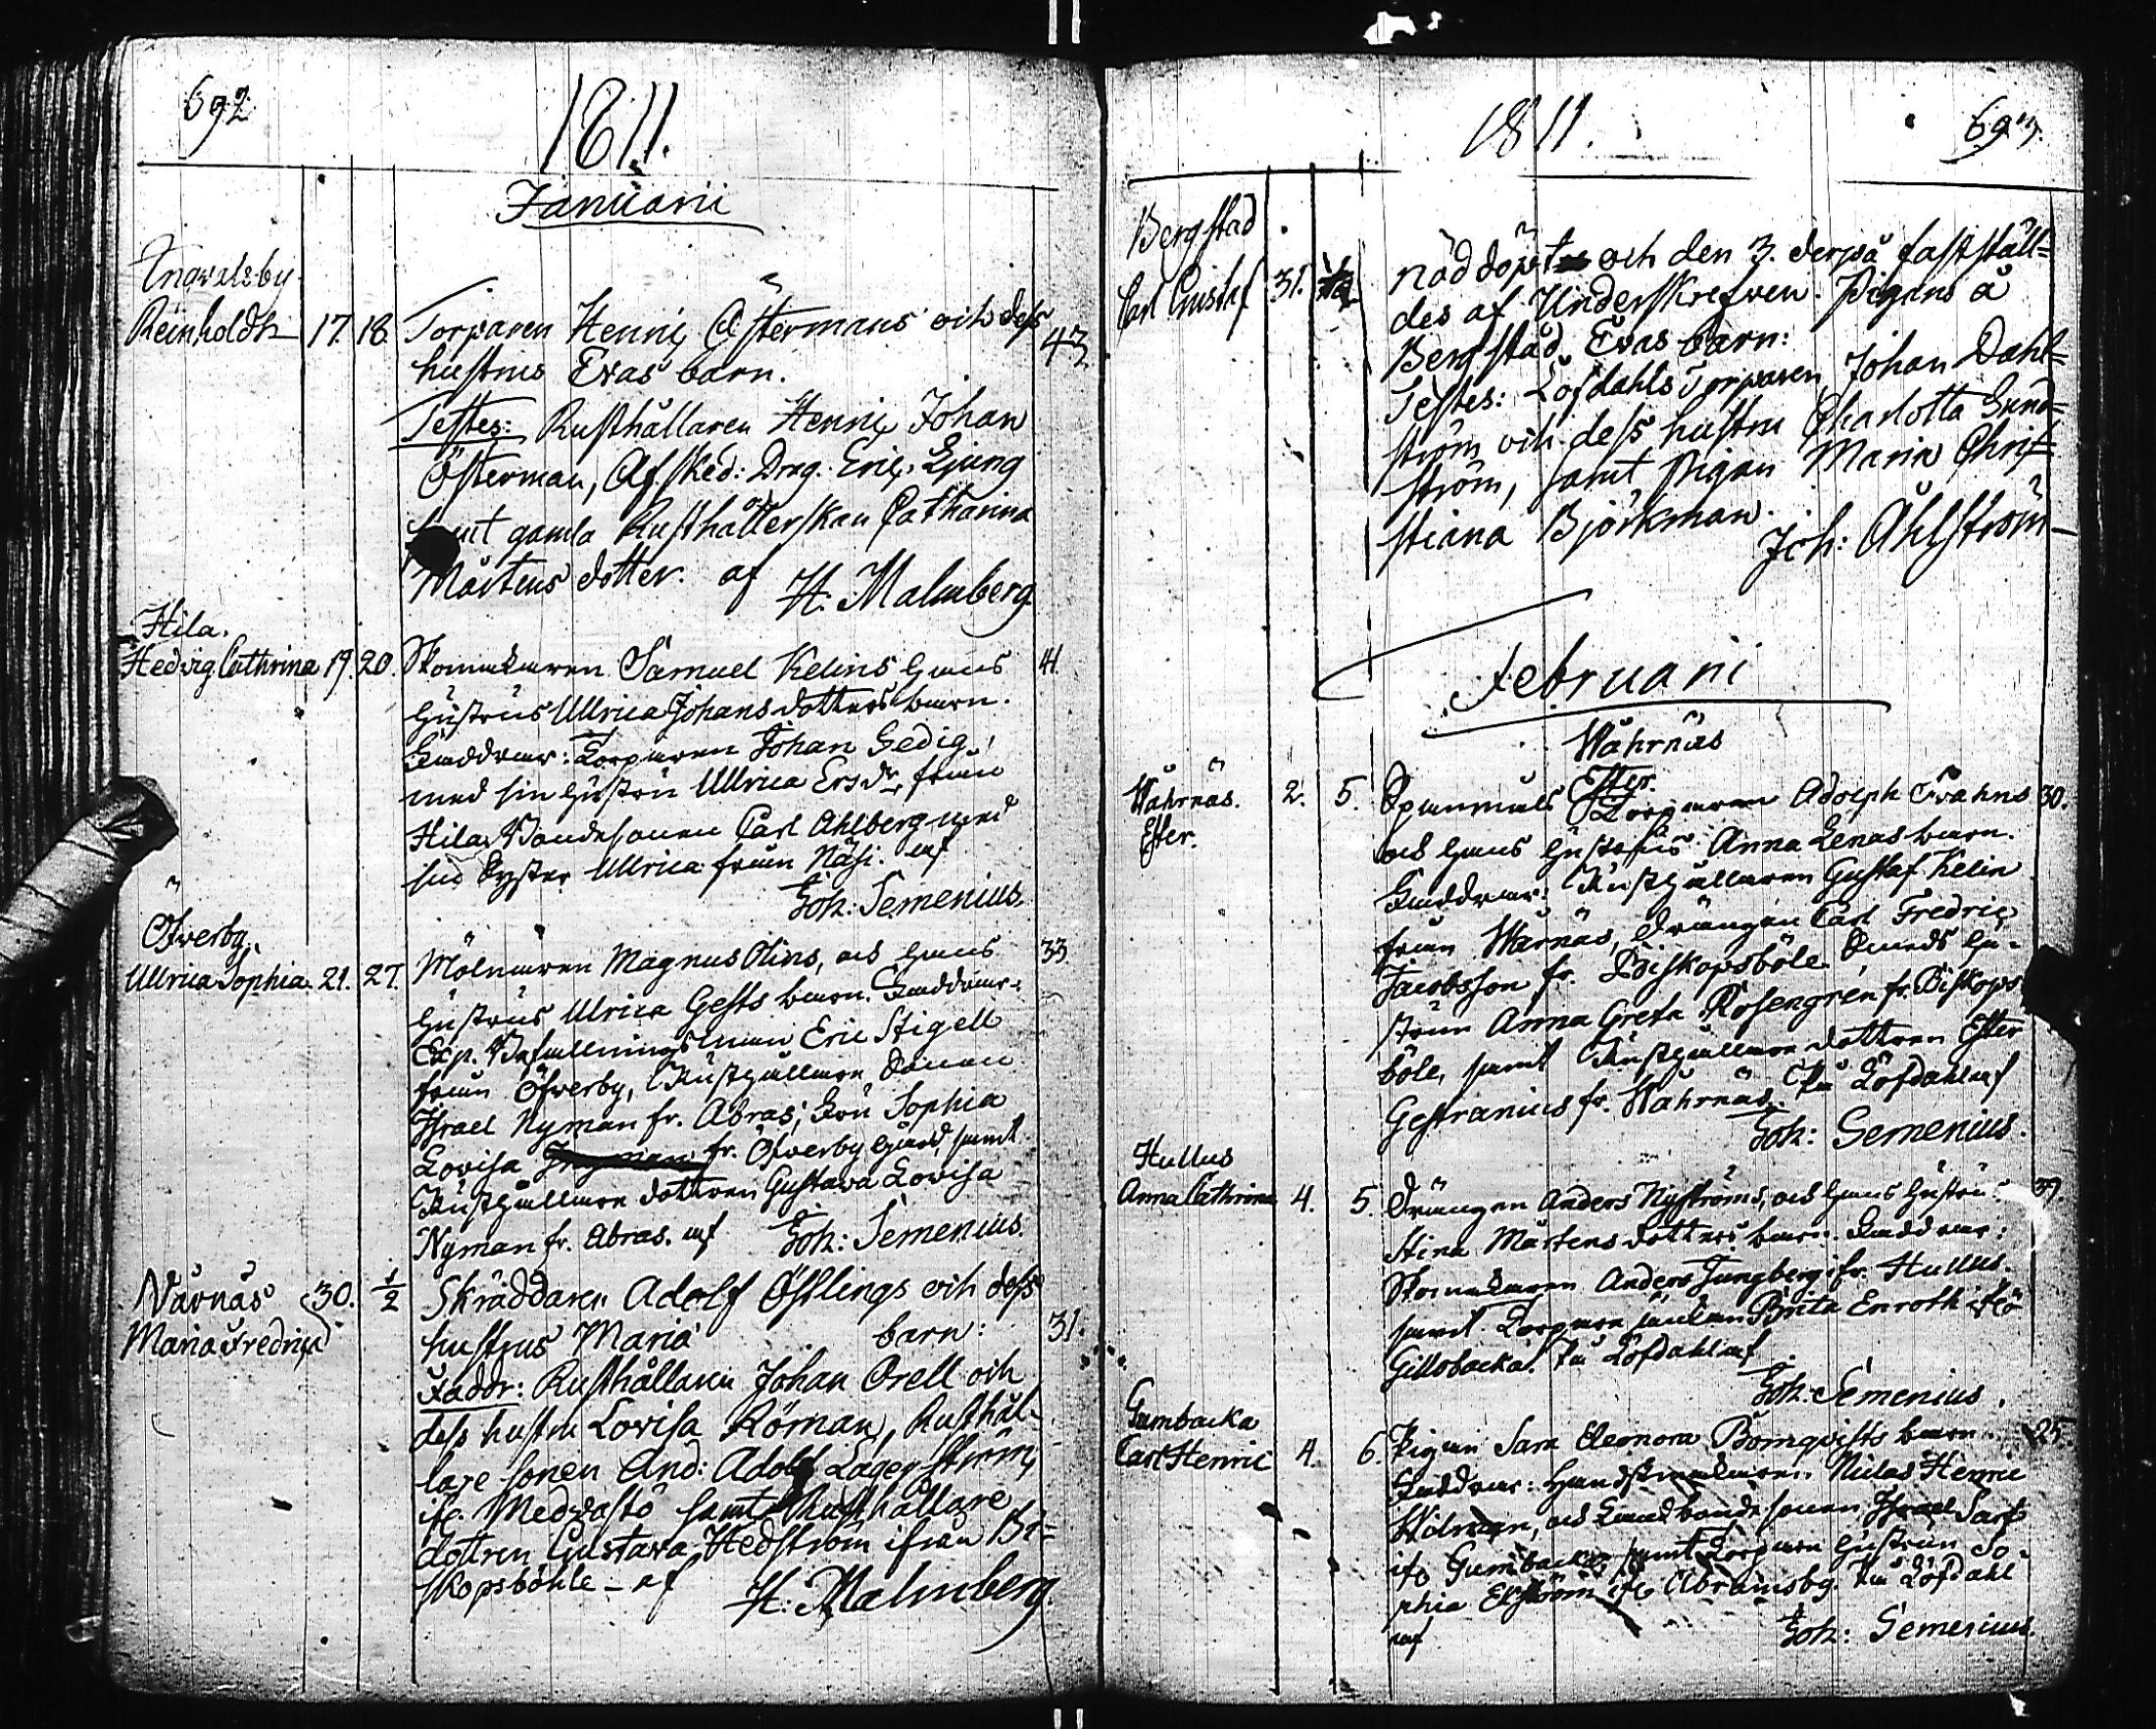 692
1811.
Januarii
Ingvalsby
Reinholdt 17. 18. Torparen Henric Östermans och dess 43
hustrus Evas barn.
Testes: Rusthållaren Henric Johan
Österman, Afsked: Drag. Eric Ljung
samt gamla Rusthållerskan Catharina
Mårtens dotter. af H. Malmberg
Hila.
Hedvig Cathrina 19. 20. Skomakaren Samuel Kelins hans 41.
hustrus Ullrica Johansdotters barn.
Faddrar: Torparen Johan Gedig,
med sin hustru Ullrica Ersdr, från
Hila, Bondesonen Carl Ahlberg med
sin Syster Ullrica från Näsi. af
Joh: Semenius.
Öfverby.
Ullrica Sophia. 21. 27. Mölnaren Magnus Olins, och hans 33
hustrus Ulrica Gests barn. Faddrar:
Exp. Befallningsman Eric Stigell
från Öfverby, Rusthållare Sonen
Israel Nyman fr. Abras; Fru Sophia
Lovisa fr. Öfverby gård, samt
Rusthållare dottren Gustava Lovisa
Nyman fr. Abras. af Joh: Semenius.
Värnäs 30. 1/2 Skräddaren Adolf Östlings och dess
Maria Fredrica hustrus Maria barn: 31.
Faddr: Rusthållaren Johan Orell och
dess hustru Lovisa Röman, Rusthål-
lare sonen And: Adolf Lagerström
ifr. Medvastö samt Rusthållare
dottren Gustava Hedström ifrån Bi=
skopsböhle – af H: Malmberg.
1811. 693.
Bergstad
Carl Gustaf 31. nöddöpt och den 3. derpå fastställ=
des af Underskrefven. Pigans å
Bergstad Evas barn:
Testes: Löfdahls Torparen Johan Dahl=
ström och dess hustru Charlotta Grund=
ström, samt Pigan Maria Chri=
stiana Björkman.
Joh: Åhlström
Februarii
Wåhrnäs
Ester.
Wåhrnäs. 2. 5. Spanmåls Torparen Adolph Frahns 30.
Ester. och hans hustrus Anna Lenas barn.
Faddrar: Rusthållaren Gustaf Kelin
från Wårnäs, Drängen Carl Fredric
Jacobsson fr. Biskopsböle Smeds hu-
strun Anna Greta Rosengrén fr. Biskops
böle, samt Rusthållare dottren Ester
Gestranius fr. Wåhrnäs. På Löfdahl af
Joh: Semenius.
Hullus
Anna Cathrina 4. 5. Drängen Anders Nyströms, och hans hustru 37.
Stina Mårtens dotters barn. Faddrar:
Skomakaren Anders Jungberg fr. Hullus.
samt Torpare änkan Brita Enroth ifrå
Gillobacka. På Löfdahl af
Joh: Semenius.
Gumbacka
Carl Henric 4. 6. Pigan Sara Eleonora Bomqvists barn. 25.
Faddrar: Handskmakaren Niclas Henric
Widman, och Landbonde sonen Israel Sarf
ifr. Gumbacka, samt Torpare hustrun So-
phia Ekström ifr. Abramsby. På Löfdahl
af Joh: Semenius.